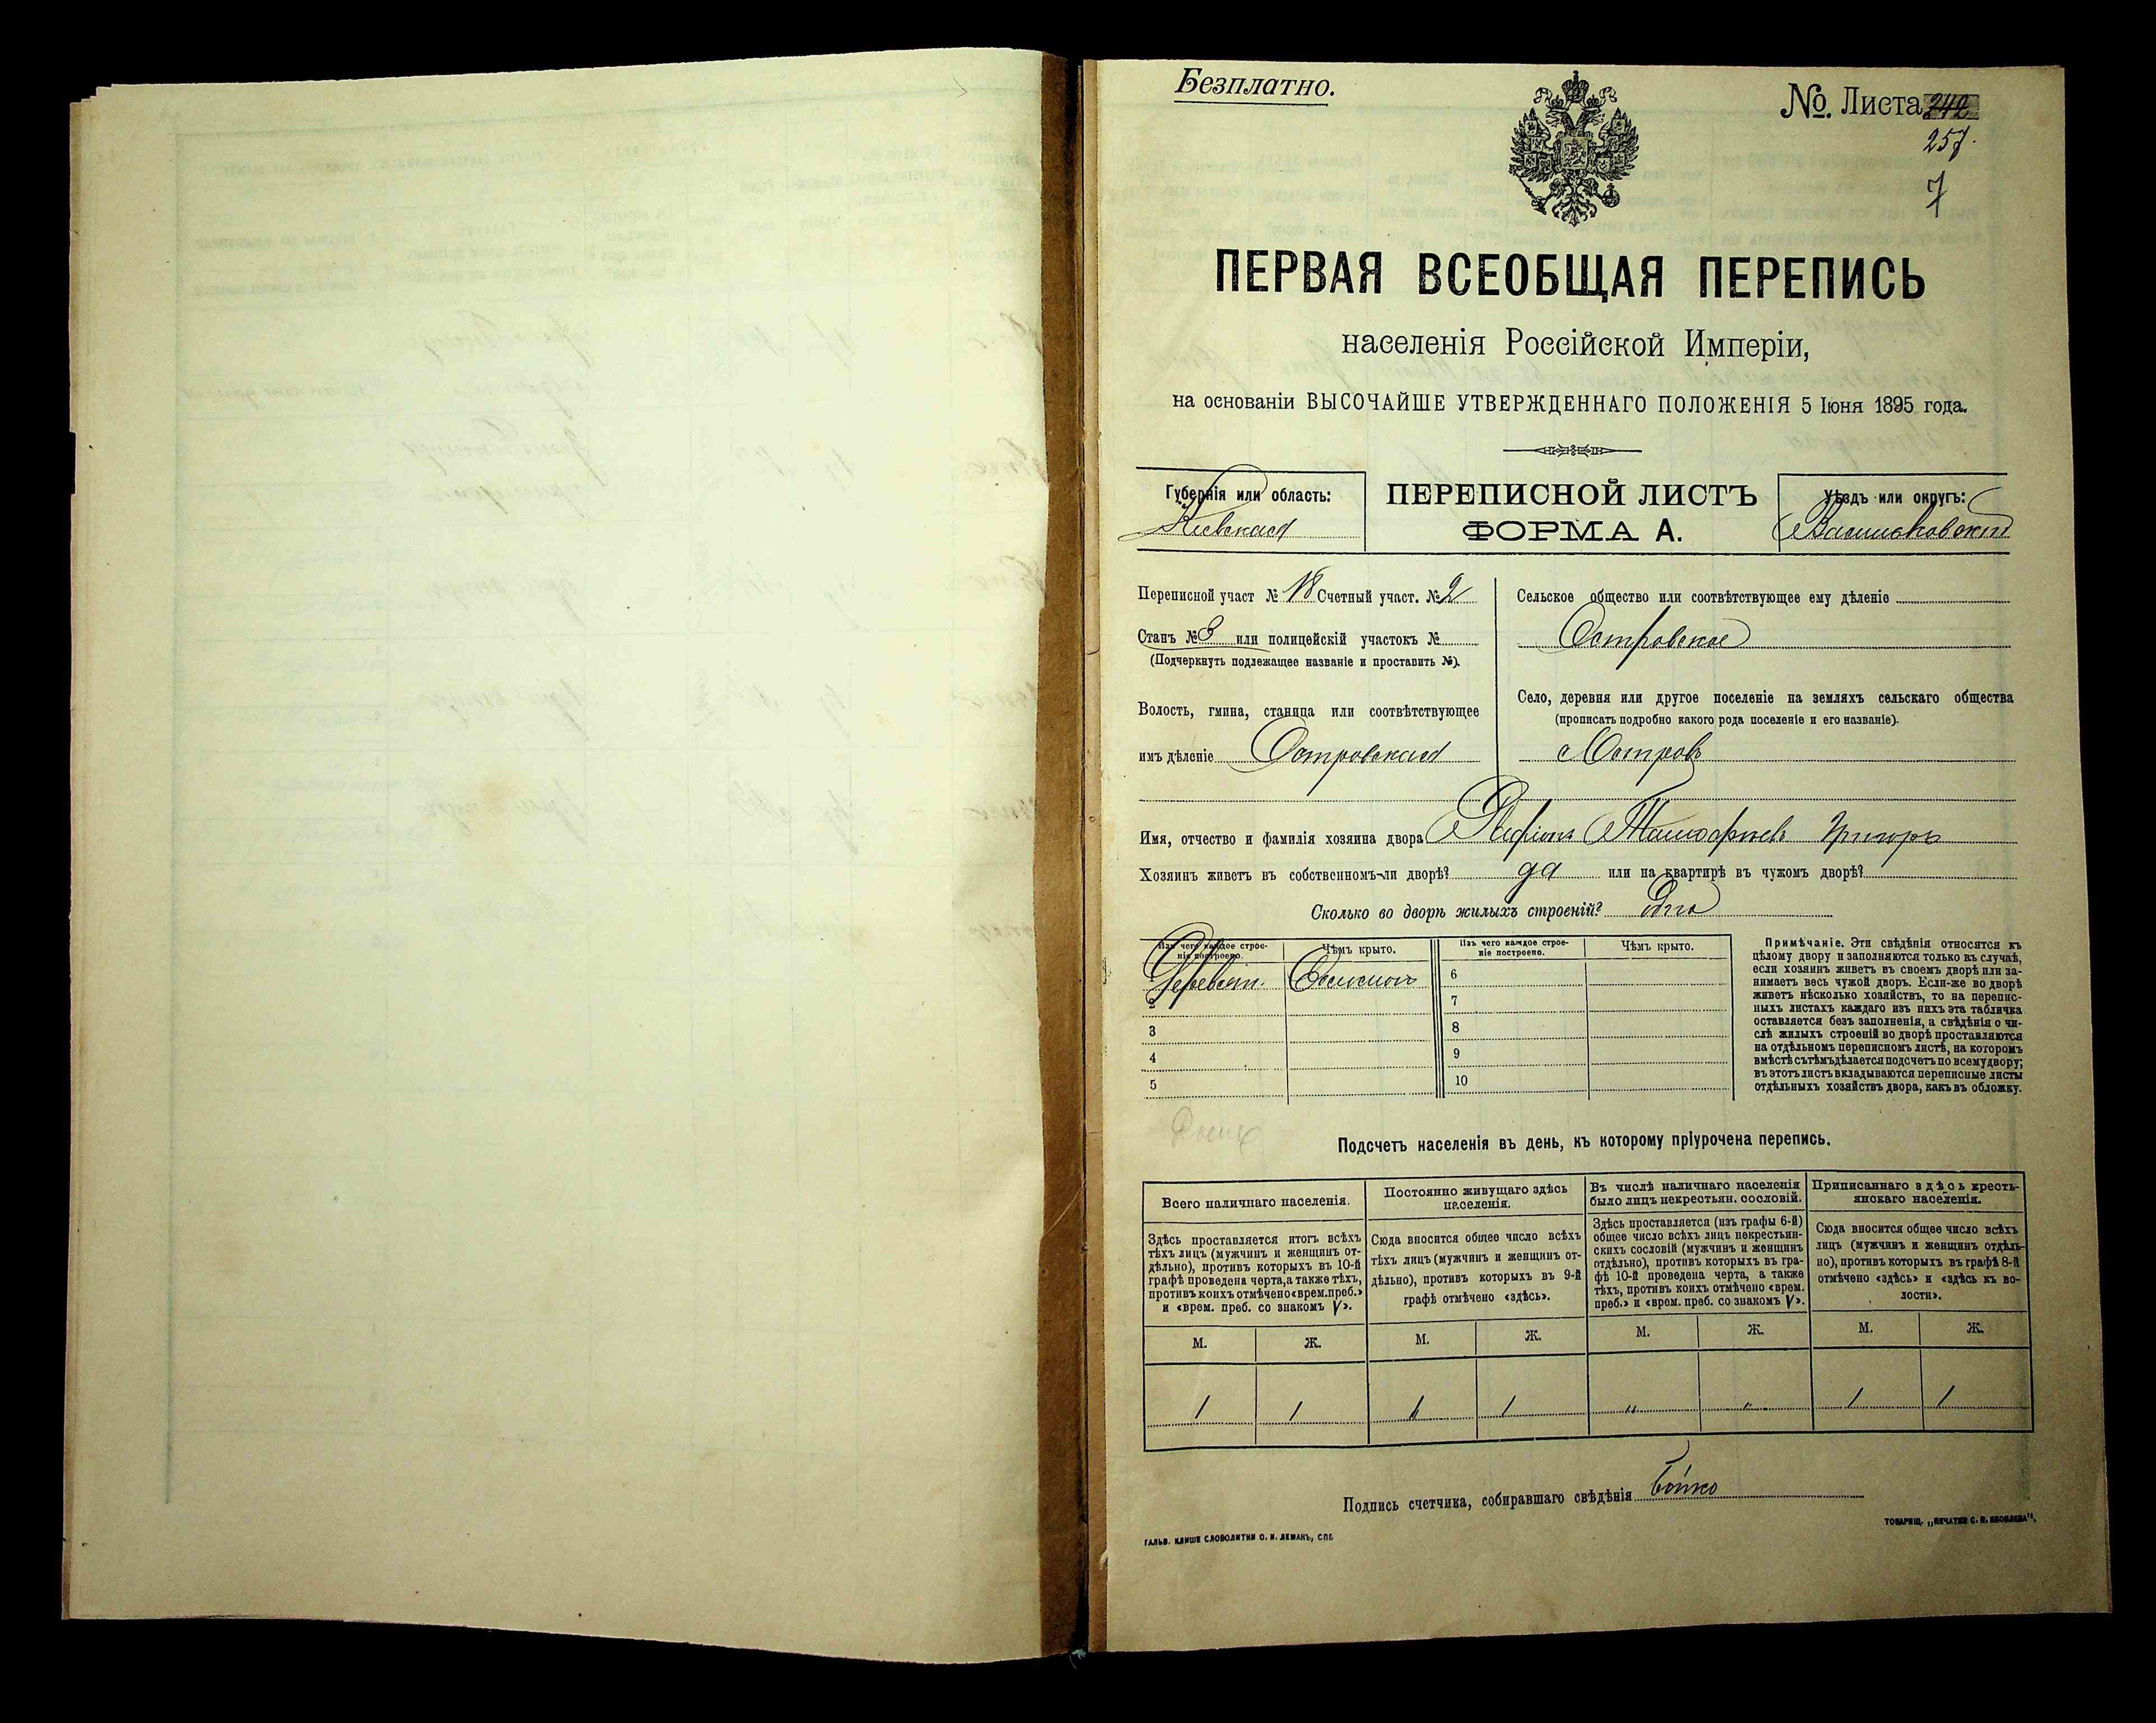 Безплатно.
№. Листа 242
257.
7
ПЕРВАЯ ВСЕОБЩАЯ ПЕРЕПИСЬ
населенія Россійской Имперіи,
на основаніи ВЫСОЧАЙШЕ УТВЕРЖДЕННАГО ПОЛОЖЕНІЯ 5 Іюня 1895 года.
Губернія или область:
Кіевская
ПЕРЕПИСНОЙ ЛИСТЪ
ФОРМА А.
Уѣздъ или округъ:
Васильковскій
Переписной участ № 18 Счетный участ. № 2
Станъ № 3 или полицейскій участокъ №
(Подчеркнуть подлежащее названіе и проставить №).
Волость, гмина, станица или соотвѣтствующее
имъ дѣленіе Островская
Сельское общество или соотвѣтствующее ему дѣленіе
Островское
Село, деревня или другое поселеніе на земляхъ сельскаго общества
(прописать подробно какого рода поселеніе и его названіе).
с Островъ
Имя, отчество и фамилія хозяина двора Тимофеевъ
Хозяинъ живетъ въ собственномъ-ли дворѣ? да или на квартирѣ въ чужомъ дворѣ?
Сколько во дворѣ жилыхъ строеній? Одно
Изъ чего каждое строе-
ніе построено.
Чѣмъ крыто.
Изъ чего каждое строе-
ніе построено.
Чѣмъ крыто.
Деревян. Соломою 6
2 7
3 8
4 9
5 10
Примѣчаніе. Эти свѣдѣнія относятся къ
цѣлому двору и заполняются только въ случаѣ,
если хозяинъ живетъ въ своемъ дворѣ или за-
нимаетъ весь чужой дворъ. Если-же во дворѣ
живетъ нѣсколько хозяйствъ, то на перепис-
ныхъ листахъ каждаго изъ нихъ эта табличка
оставляется безъ заполненія, а свѣдѣнія о чи-
слѣ жилыхъ строеній во дворѣ проставляются
на отдѣльномъ переписномъ листѣ, на которомъ
вмѣстѣ съ тѣмъ дѣлается подсчетъ по всему двору;
въ этотъ листъ вкладываются переписные листы
отдѣльныхъ хозяйствъ двора, какъ въ обложку.
Подсчетъ населенія въ день, къ которому пріурочена перепись.
Всего наличнаго населенія.
Здѣсь проставляется итогъ всѣхъ
тѣхъ лицъ (мужчинъ и женщинъ от-
дѣльно), противъ которыхъ въ 10-й
графѣ проведена черта, а также тѣхъ,
противъ коихъ отмѣчено «врем. преб.»
и «врем. преб. со знакомъ V».
Постоянно живущаго здѣсь
населенія.
Сюда вносится общее число всѣхъ
тѣхъ лицъ (мужчинъ и женщинъ от-
дѣльно), противъ которыхъ въ 9-й
графѣ отмѣчено «здѣсь».
Въ числѣ наличнаго населенія
было лицъ некрестьян. сословій.
Здѣсь проставляется (изъ графы 6-й)
общее число всѣхъ лицъ некрестьян-
скихъ сословій (мужчинъ и женщинъ
отдѣльно), противъ которыхъ въ гра-
фѣ 10-й проведена черта, а также
тѣхъ, противъ коихъ отмѣчено «врем.
преб.» и «врем. преб. со знакомъ V».
Приписаннаго здѣсь кресть-
янскаго населенія.
Сюда вносится общее число всѣхъ
лицъ (мужчинъ и женщинъ отдѣль-
но), противъ которыхъ въ графѣ 8-й
отмѣчено «здѣсь» и «здѣсь къ во-
лости».
М. Ж. М. Ж. М. Ж. М. Ж.
1 1 1 1 " " 1 1
Подпись счетчика, собиравшаго свѣдѣнія Бойко
ГАЛЬВ. КЛИШЕ СЛОВОЛИТНИ О. И. ЛЕМАНЪ, СПБ
ТОВАРИЩ. „ПЕЧАТНЯ С. П. ЯКОВЛЕВА".